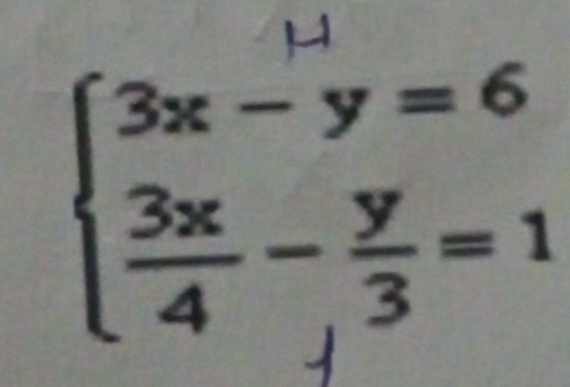 3x − y = 6
3x/4 − y/3 = 1